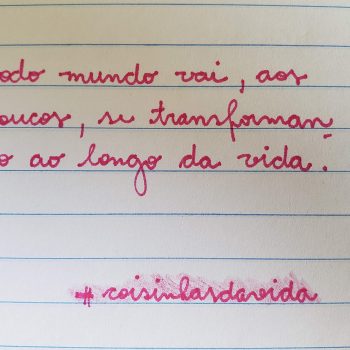 odo mundo vai, aos
oucos, se transforman-
o ao longo da vida.
#coisinhasdavida